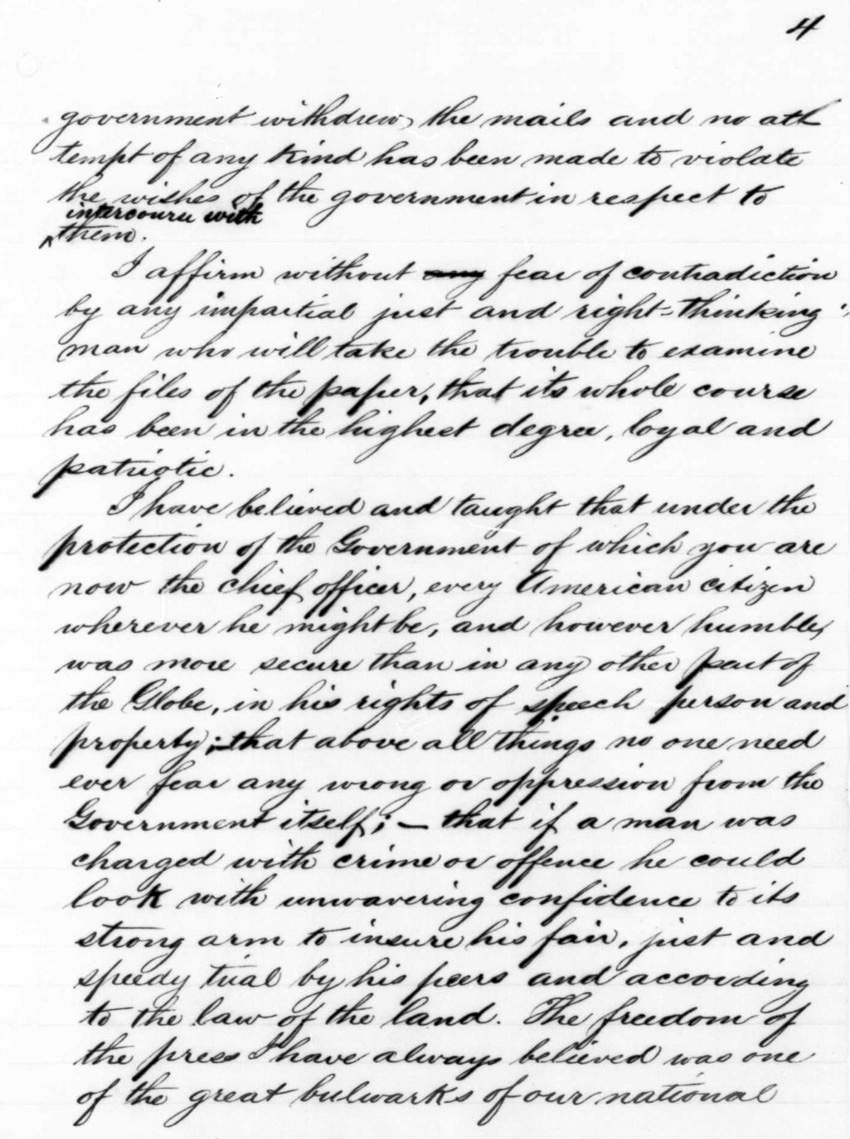 4
government withdrew the mails and no at-
tempt of any kind has been made to violate
the wishes of the government in respect to
intercourse with
^them.
I affirm without any fear of contradiction
by any impartial just and right-thinking
man who will take the trouble to examine
the files of the paper, that its whole course
has been in the highest degree, loyal and
patriotic.
I have believed and taught that under the
protection of the Government of which you are
now the chief officer, every American citizen
wherever he might be, and however humble,
was more secure than in any other part of
the Globe, in his rights of speech person and
property; that above all things no one need
ever fear any wrong or oppression from the
Government itself; — that if a man was
charged with crime or offence he could
look with unwavering confidence to its
strong arm to insure his fair, just and
speedy trial by his peers and according
to the law of the land. The freedom of
the press I have always believed was one
of the great bulwarks of our national